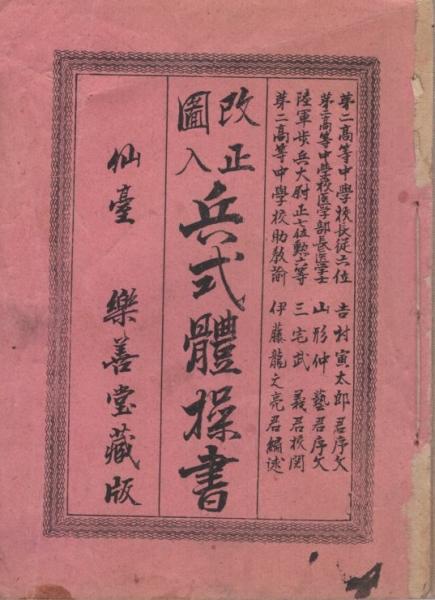 第二高等中學校長従六位 吉村寅太郎君序文
第二高等中学校医学部長医学士 山形仲藝君序文
陸軍歩兵大尉正七位勲六等 三宅武義君校閲
第二高等中學校助教諭 伊藤龍文亮君編述
改正
圖入
兵式體操書
仙臺 樂善堂藏版